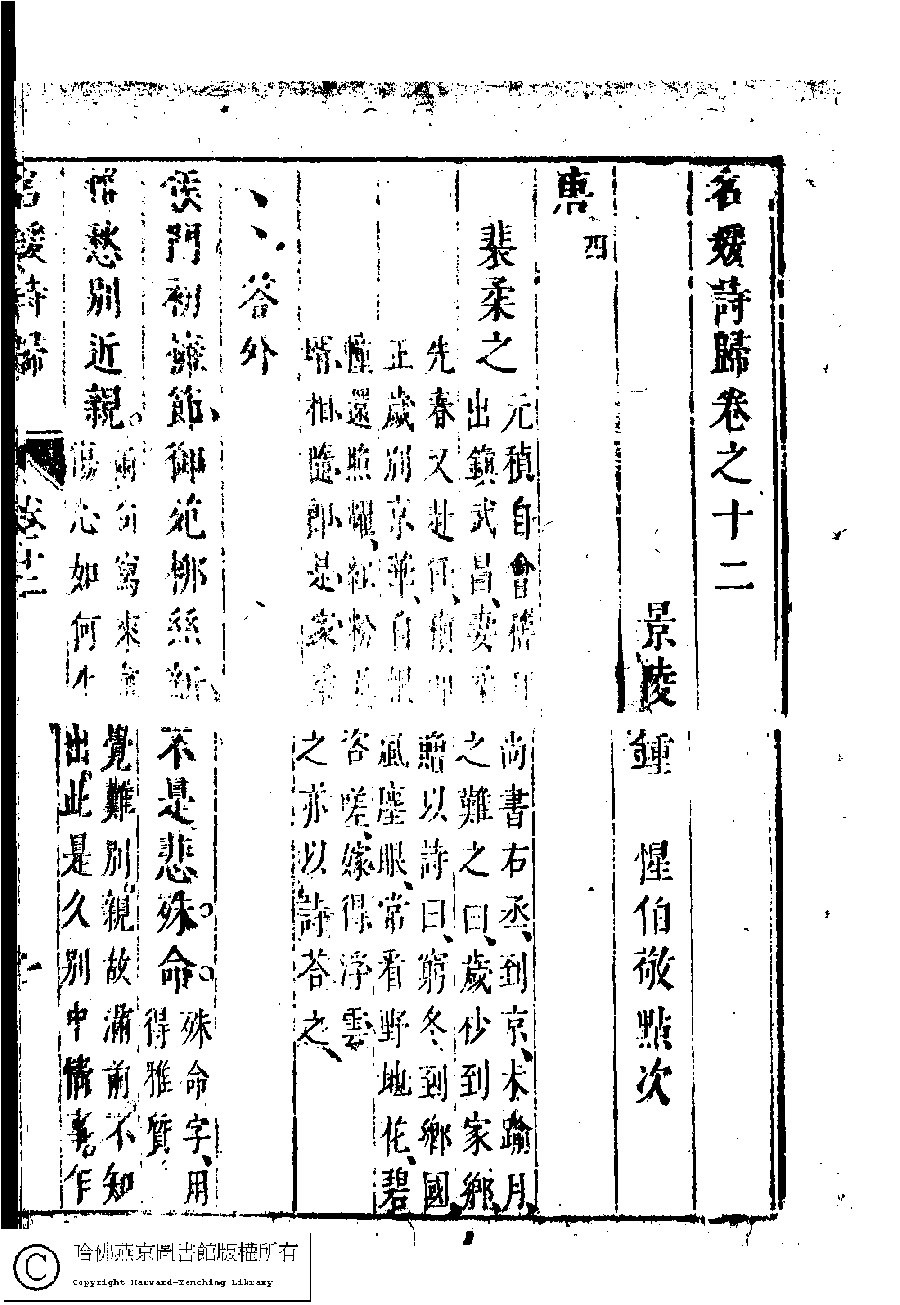 名媛詩歸卷之十二
景陵 鍾 惺伯敬點次
唐 四
裴柔之
元稹自會稽 尚書右丞、到京、未踰月、
出鎮武昌、妻 之難之曰、歲杪到家鄉、
先春又赴任、 贈以詩曰、窮冬到鄉國、
正歲別京華、自 風塵眼、常看野地花、碧
幢還照耀、紅粉 咨嗟、嫁得浮雲
壻、相隨即是家、 之亦以詩荅之、
荅外
侯門初擁節、御苑柳絲新 不是悲殊命。殊命字、用
得雅質
愁別近親。兩句寫來 覺難別。親故滿前、不知
傷心如何 出。此是久別中情事。乍
名媛詩歸 卷十二 一
哈佛燕京圖書館版權所有
Copyright Harvard-Yenching Library